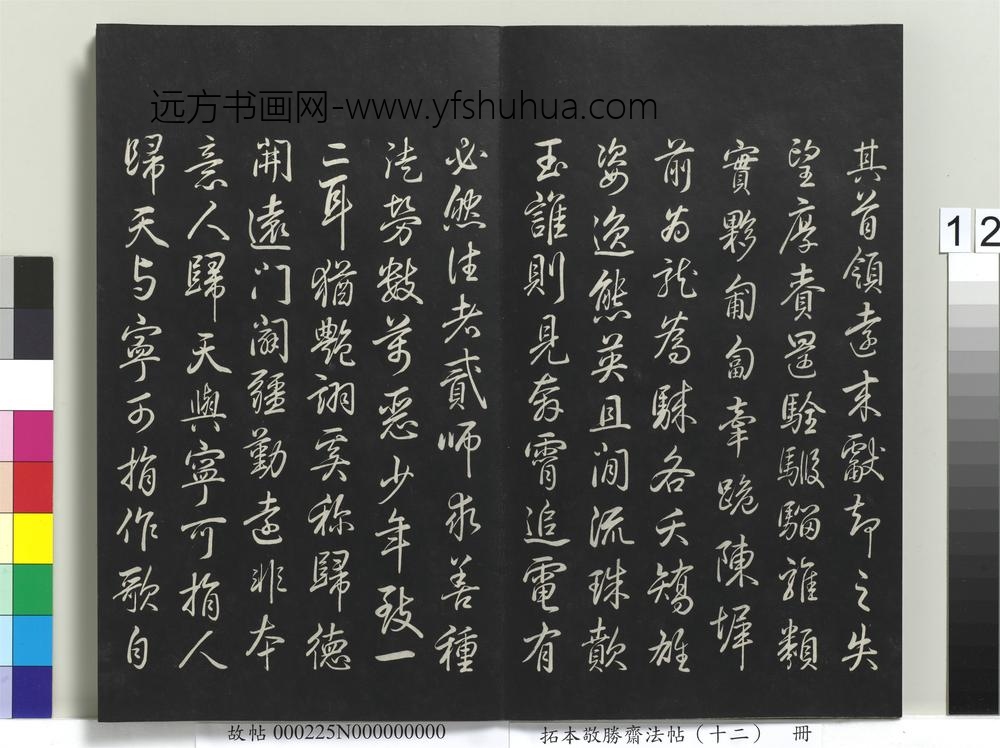 远方书画网-www.yfshuhua.com
其首領遠來獻却之失
望厚賚駩騢騮騅類
實夥匍匐牽跪陳墀
前為龍為騋各夭矯雄
姿逸態英且閒流珠歕
玉誰則見奔霄追電有
必然往者貳師求善種
徒勞數萬惡少年致一
二耳猶艷詡奚称歸德
開遠門闢疆勤遠非本
意人歸天與寧可捐人
歸天与寧可捐作歌自
12
故帖 000225N000000000
拓本敬勝齋法帖（十二） 冊